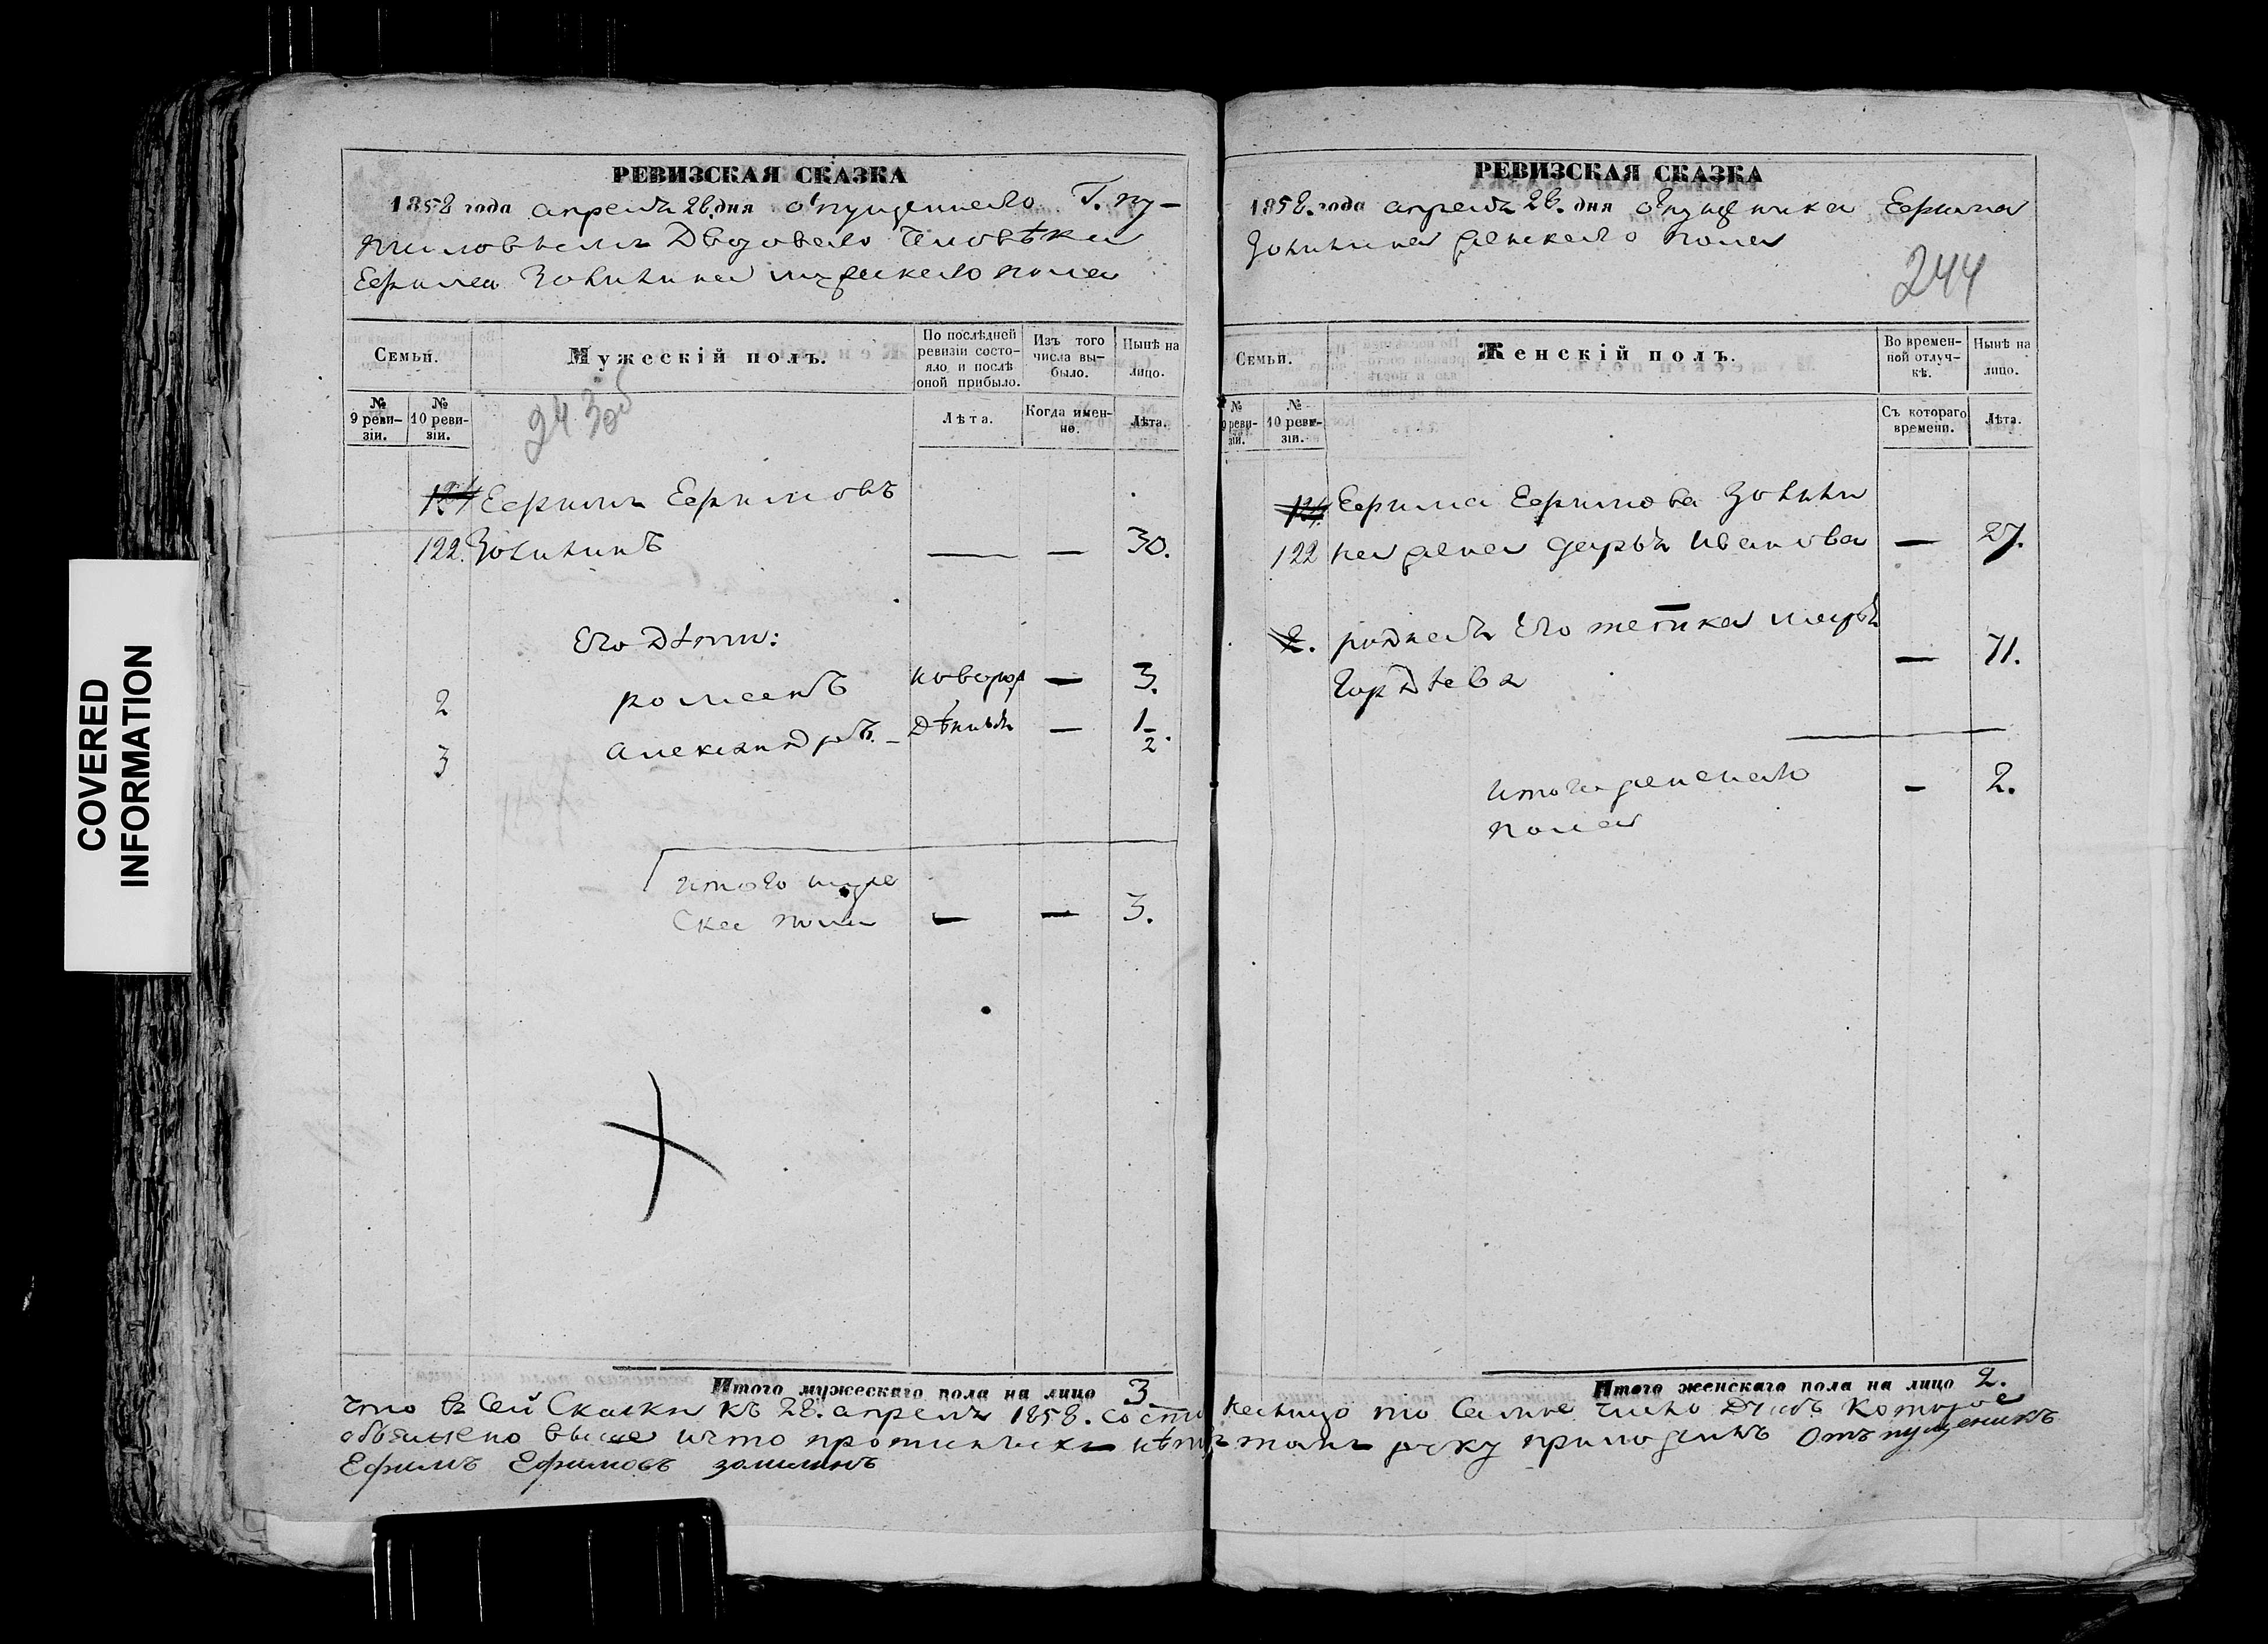 COVERED
INFORMATION
РЕВИЗСКАЯ СКАЗКА
1858 года апреля 28. дня отпущеннаго Г. Пу-
тиловымъ Двороваго Человѣка
Ефима мужескаго пола
Семьи.
Мужескій полъ.
По послѣдней ревизіи состояло и послѣ оной прибыло.
Изъ того числа выбыло.
Нынѣ на лицо.
№ 9 ревизіи.
№ 10 ревизіи.
Лѣта.
Когда именно.
Лѣта.
243об
121 Ефимъ Ефимовъ
122. — — 30.
Его Дѣти:
2 романъ новорож — 3.
3 александръ. – Дѣнныя — 1/2.
итого муже
Ска пола — — 3.
Итого мужескаго пола на лицо 3.
РЕВИЗСКАЯ СКАЗКА
1858. года апреля 28. дня отпущеника Ефима
женскаго пола
244
Семьи.
Женскій полъ.
Во временной отлучкѣ.
Нынѣ на лицо.
№ 9 ревизіи.
№ 10 ревизіи.
Съ котораго времени.
Лѣта.
121 Ефима Ефимова
122 на жена дарья Иванова — 27.
2. родная Его тетка марья
Гордѣева — 71.
итого женскаго — 2.
пола
Итого женскаго пола на лицо 2.
что въ Сей Скаски къ 28. апреля 1858. состо налицо то Самое число Душъ Которое
объявлено выше что нѣтъ томъ руку приложилъ Отпущеникъ
Ефимъ Ефимовъ